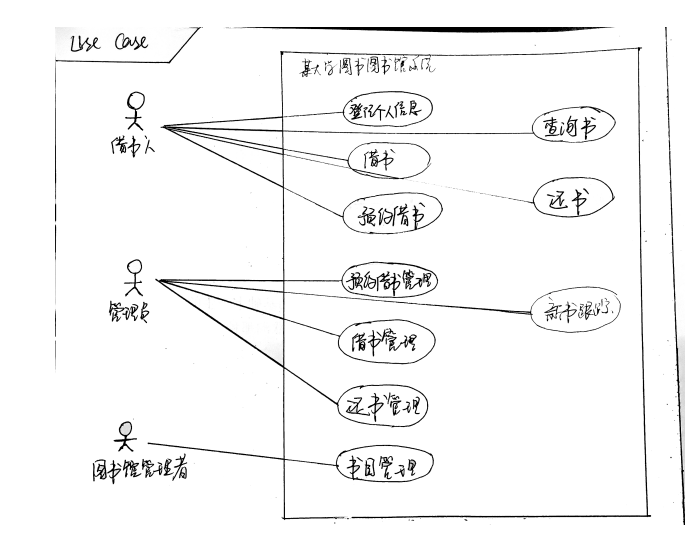 Use Case
某大学图书图书馆系统
登记个人信息
借书人
查询书
借书
还书
预约借书
预约借书管理
管理员
新书跟踪
借书管理
还书管理
图书馆管理者
书目管理